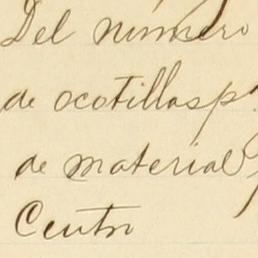 Del numero
de ocotillas p.
de material
Centro